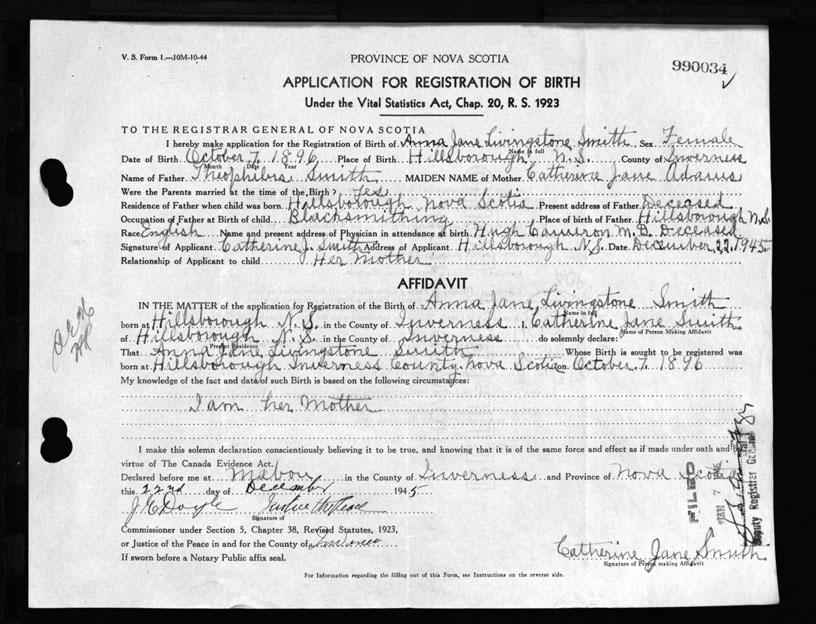 V. S. Form 1.—10M-10-44
PROVINCE OF NOVA SCOTIA
990034
APPLICATION FOR REGISTRATION OF BIRTH
Under the Vital Statistics Act, Chap. 20, R. S. 1923
TO THE REGISTRAR GENERAL OF NOVA SCOTIA
I hereby make application for the Registration of Birth of Anna Jane Livingstone Smith Sex Female
Name in full
Date of Birth October 7, 1896 Place of Birth Hillsborough, N.S. County of Inverness
Month Date Year
Name of Father Theophilus Smith MAIDEN NAME of Mother Catherine Jane Adams
Were the Parents married at the time of the Birth? Yes
Residence of Father when child was born Hillsborough Nova Scotia Present address of Father Deceased
Occupation of Father at Birth of child Blacksmithing Place of birth of Father Hillsborough N.S.
Race English Name and present address of Physician in attendance at birth Hugh Cameron M.D. Deceased
Signature of Applicant Catherine J. Smith Address of Applicant Hillsborough N.S. Date December 22, 1945
Relationship of Applicant to child Her Mother
AFFIDAVIT
IN THE MATTER of the application for Registration of the Birth of Anna Jane Livingstone Smith
Name in full
born at Hillsborough N.S. in the County of Inverness I, Catherine Jane Smith
Name of Person Making Affidavit
of Hillsborough N.S. in the County of Inverness do solemnly declare:
Present Residence
That Anna Jane Livingstone Smith Whose Birth is sought to be registered was
born at Hillsborough Inverness County Nova Scotia on October 7, 1896
My knowledge of the fact and date of such Birth is based on the following circumstances:
I am her Mother
I make this solemn declaration conscientiously believing it to be true, and knowing that it is of the same force and effect as if made under oath and by
virtue of The Canada Evidence Act.
Declared before me at Mabou in the County of Inverness and Province of Nova Scotia
this 22nd day of December 1945
J. E. Doyle Justice of the Peace
Signature of
Commissioner under Section 5, Chapter 38, Revised Statutes, 1923,
or Justice of the Peace in and for the County of Inverness
If sworn before a Notary Public affix seal.
Catherine Jane Smith
Signature of Person making Affidavit
For Information regarding the filling out of this Form, see Instructions on the reverse side.
FILED
JAN 7
Deputy Registrar General